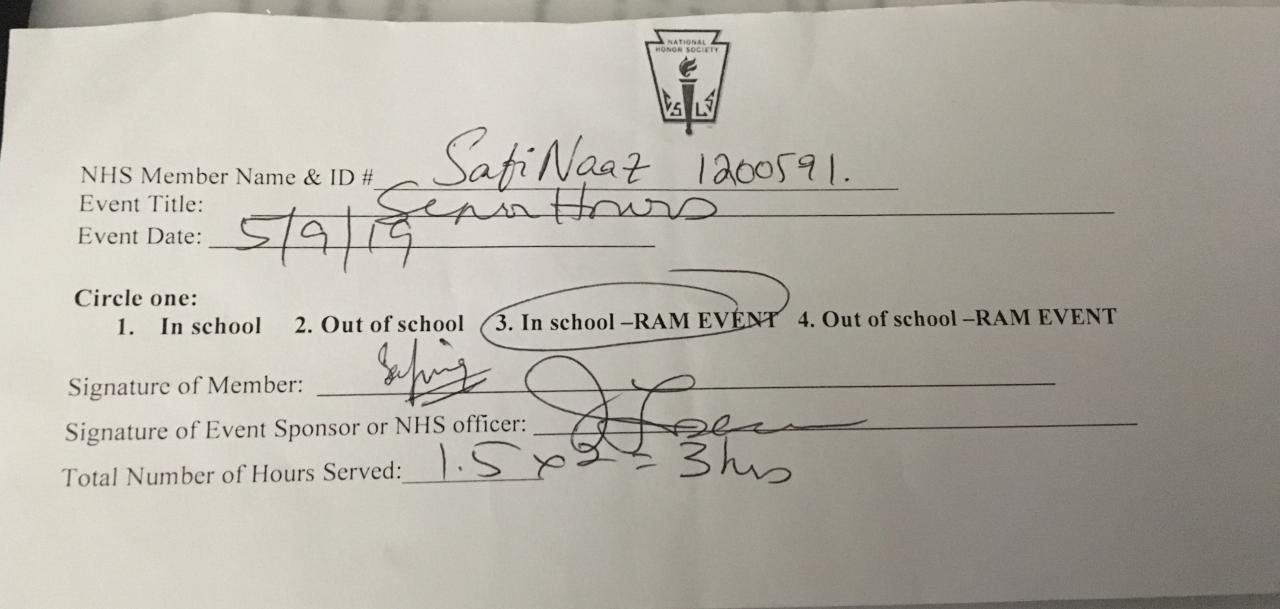 NATIONAL
HONOR SOCIETY
C S L S
NHS Member Name & ID # Safi Naaz 1200591.
Event Title: Senior Hours
Event Date: 5/9/19
Circle one:
1. In school 2. Out of school 3. In school –RAM EVENT 4. Out of school –RAM EVENT
Signature of Member:
Signature of Event Sponsor or NHS officer:
Total Number of Hours Served: 1.5 x 2 = 3 hrs